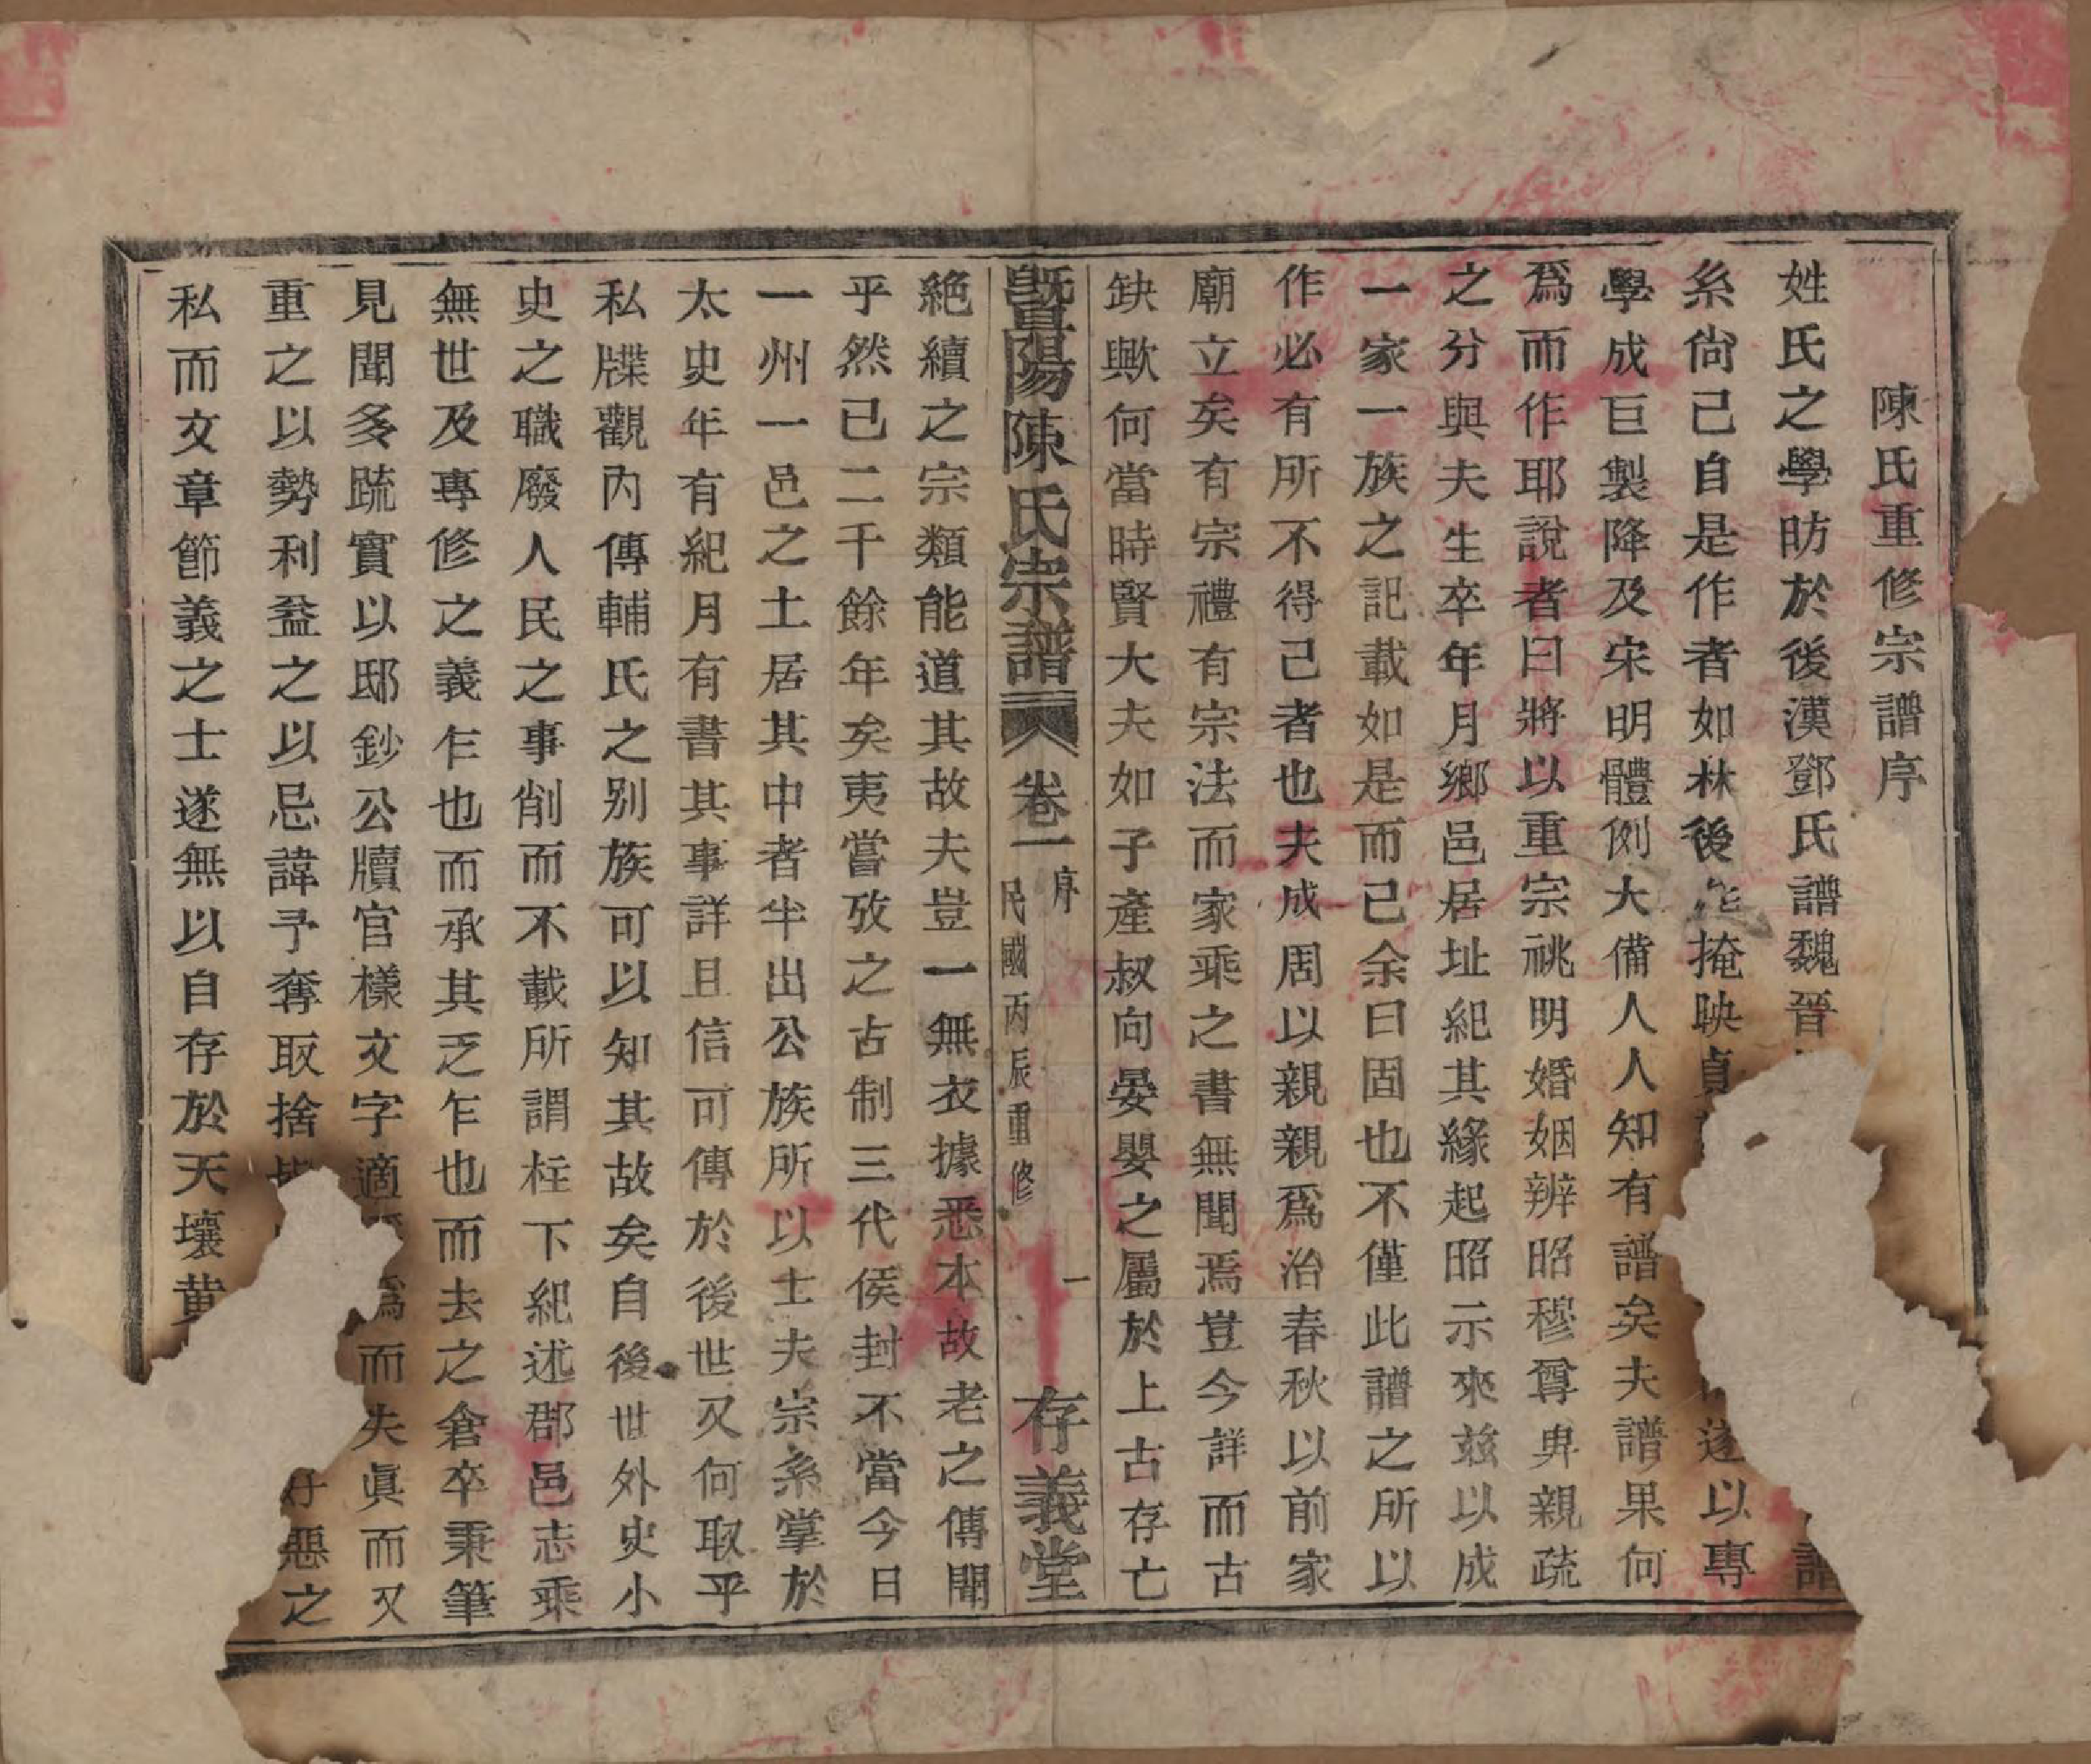 陳氏重修宗譜序
姓氏之學昉於後漢鄧氏譜魏晉譜
系尙己自是作者如林後先掩映遂以專
學成巨製降及宋明體例大備人人知有譜矣夫譜果何
爲而作耶說者曰將以重宗祧明婚姻辨昭穆尊卑親疏
之分與夫生卒年月鄉邑居址紀其緣起昭示來茲以成
一家一族之記載如是而己余曰固也不僅此譜之所以
作必有所不得己者也夫成周以親親爲治春秋以前家
廟立矣有宗禮有宗法而家乘之書無聞焉豈今詳而古
缺歟何當時賢大夫如子產叔向晏嬰之屬於上古存亡
暨陽陳氏宗譜 卷一 序 民國丙辰重修 一 存義堂
絶續之宗類能道其故夫豈一無衣據悉本故老之傳聞
乎然已二千餘年矣夷嘗攷之古制三代侯封不當今日
一州一邑之土居其中者半出公族所以士夫宗系掌於
太史年有紀月有書其事詳且信可傳於後世又何取乎
私牒觀內傳輔氏之别族可以知其故矣自後世外史小
史之職廢人民之事削而不載所謂柱下紀述郡邑志乘
無世及專修之義乍也而承其乏乍也而去之倉卒秉筆
見聞多疏實以邸鈔公牘官樣文字適爲而失眞而又
重之以勢利益之以忌諱予奪取捨好惡之
私而文章節義之士遂無以自存於天壤黄